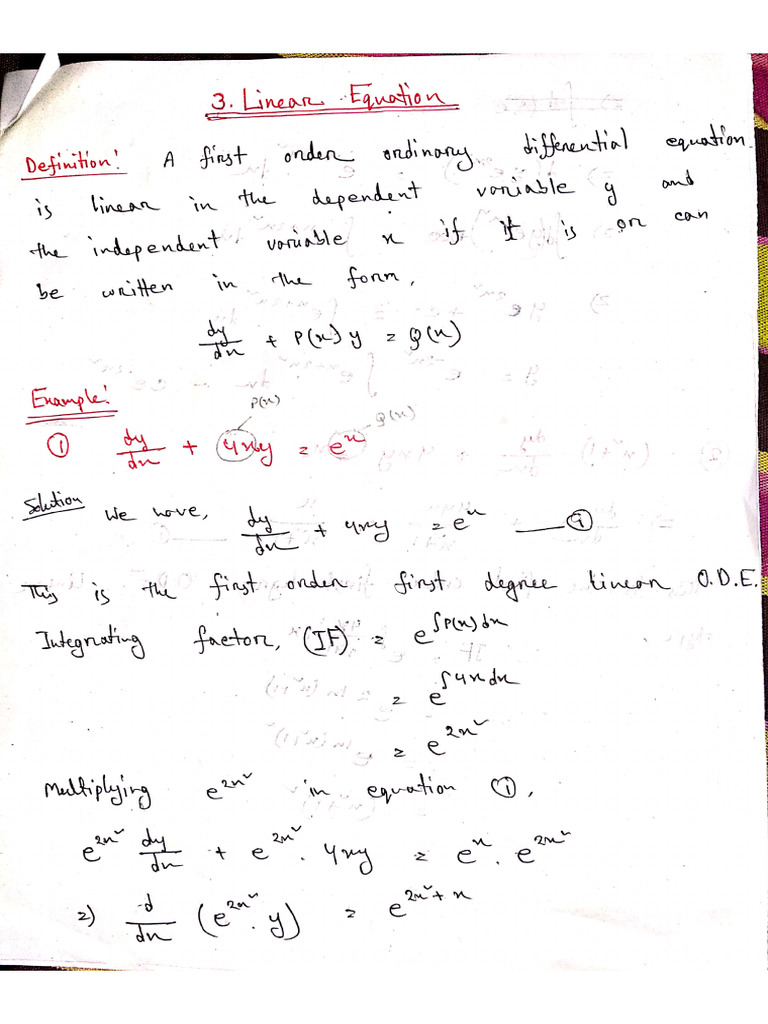 3. Linear Equation
Definition: A first order ordinary differential equation
is linear in the dependent variable y and
the independent variable x if it is or can
be written in the form,
dy/dx + P(x) y = Q(x)
Example:
P(x)
Q(x)
① dy/dx + 4xy = eˣ
Solution We have, dy/dx + 4xy = eˣ —— ①
This is the first order first degree linear O.D.E.
Integrating factor, (IF) = e^∫P(x)dx
= e^∫4xdx
= e^2x²
Multiplying e^2x² in equation ①,
e^2x² dy/dx + e^2x². 4xy = eˣ. e^2x²
⇒ d/dx (e^2x². y) = e^2x²+x